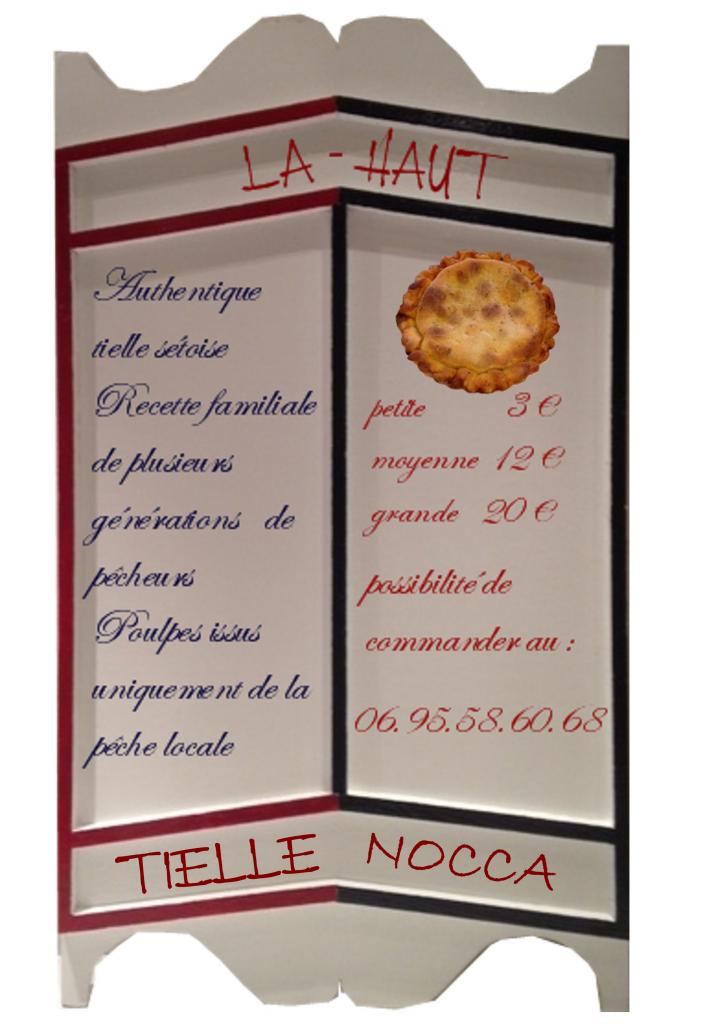 LA-HAUT
Authentique
tielle sétoise
Recette familiale
de plusieurs
générations de
pêcheurs
Poulpes issus
uniquement de la
pêche locale
petite 3 €
moyenne 12 €
grande 20 €
possibilité de
commander au :
06.95.58.60.68
TIELLE NOCCA